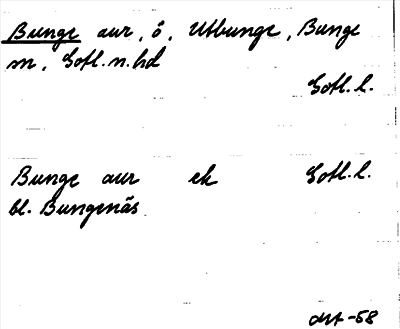 Bunge aur, ö, Utbunge, Bunge
sn, Gotl. n. hd
Gotl. l.
Bunge aur ek Gotl. l.
bl. Bungenäs
-58